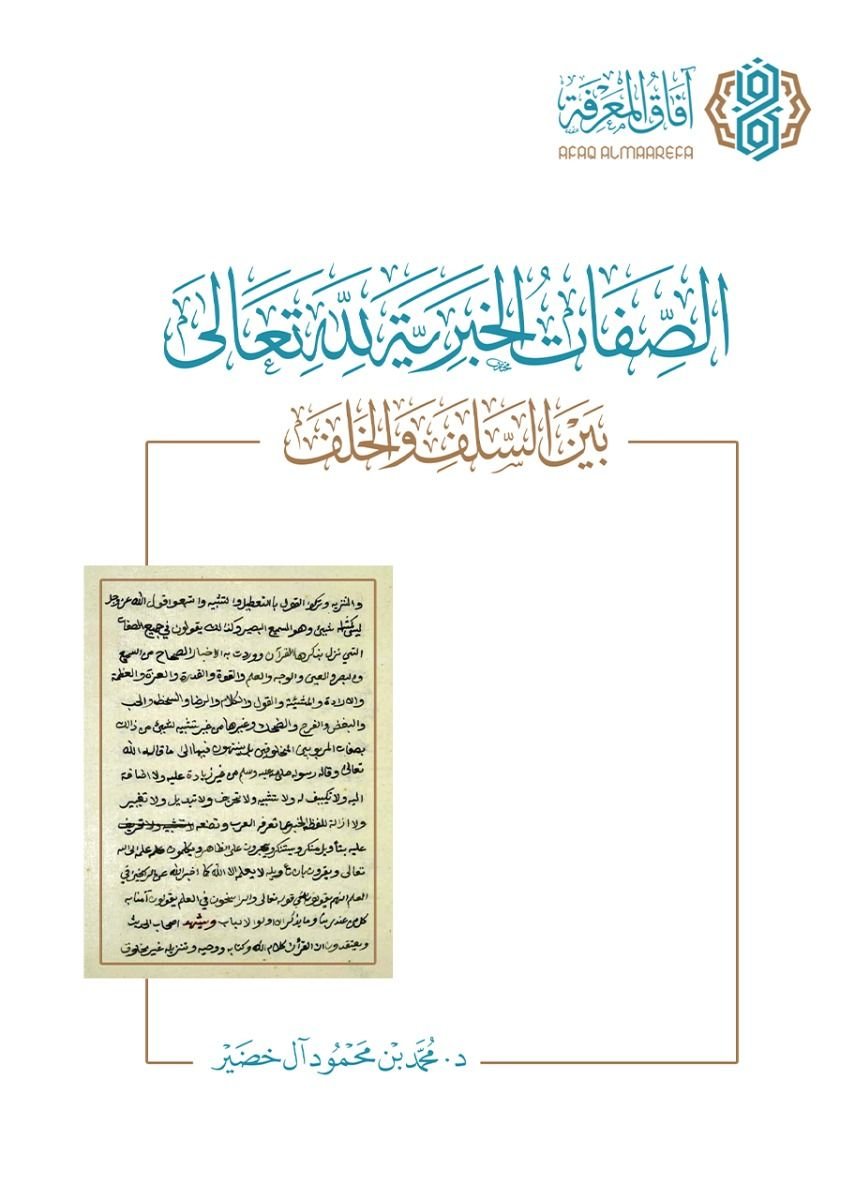 آفاق المعرفة
AFAQ ALMAAREFA
الصِّفَاتُ الخَبَرِيَّة لِلَّهِ تَعَالَى
بَيْنَ السَّلَفِ وَالخَلَف
والتنزيه وترك القول بالتعطيل والتشبيه واتبعوا قول الله عز وجل
ليس كمثله شيئ وهو السميع البصير وكذلك يقولون في جميع الصفات
التي نزل بذكرها القرآن ووردت به الاخبار الصحاح من السمع
والبصر والعين والوجه والعلم والقوة والقدرة والعزة والعظمة
والارادة والمشيئة والقول والكلام والرضا والسخط والحب
والبغض والفرح والضحك وغيرها من غير تشبيه لشيئ من ذالك
بصفات المربوبين المخلوقين بل ينتهون فيها الى ما قاله الله
تعالى وقاله رسوله صلى الله عليه وسلم من غير زيادة عليه ولا اضافة
اليه ولا تكييف له ولا تشبيه ولا تحريف ولا تبديل ولا تغيير
ولا ازالة للفظ الخبر عما تعرفه العرب وتضعه
عليه بتأويل منكر ويجرون على الظاهر
تعالى ويقرون بان تأويله لا يعلمه الا الله كما اخبر الله عن الراسخين في
العلم انهم يقولون قوله تعالى والراسخون في العلم يقولون آمنا به
كل من عند ربنا وما يذكر الا اولوا الالباب ويشهد اصحاب الحديث
ويعتقدون ان القرآن كلام الله وكتابه ووحيه وتنزيله غير مخلوق
د. مُحَمَّد بْن مَحْمُود آل خضَيْر